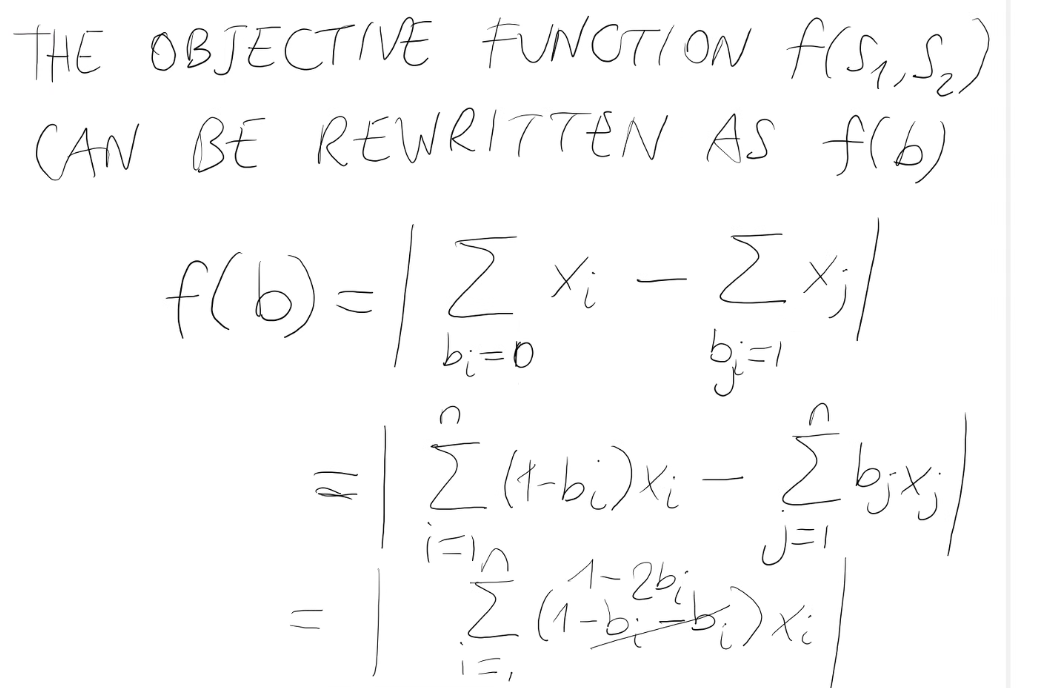 THE OBJECTIVE FUNCTION f(S₁,S₂)
CAN BE REWRITTEN AS f(b)
f(b)=|∑_{b_i=0} x_i − ∑_{b_j=1} x_j|
=|∑_{i=1}^{n} (1-b_i)x_i − ∑_{j=1}^{n} b_j x_j|
1-2b_i
=|∑_{i=1}^{n} (1-b_i-b_i)x_i|